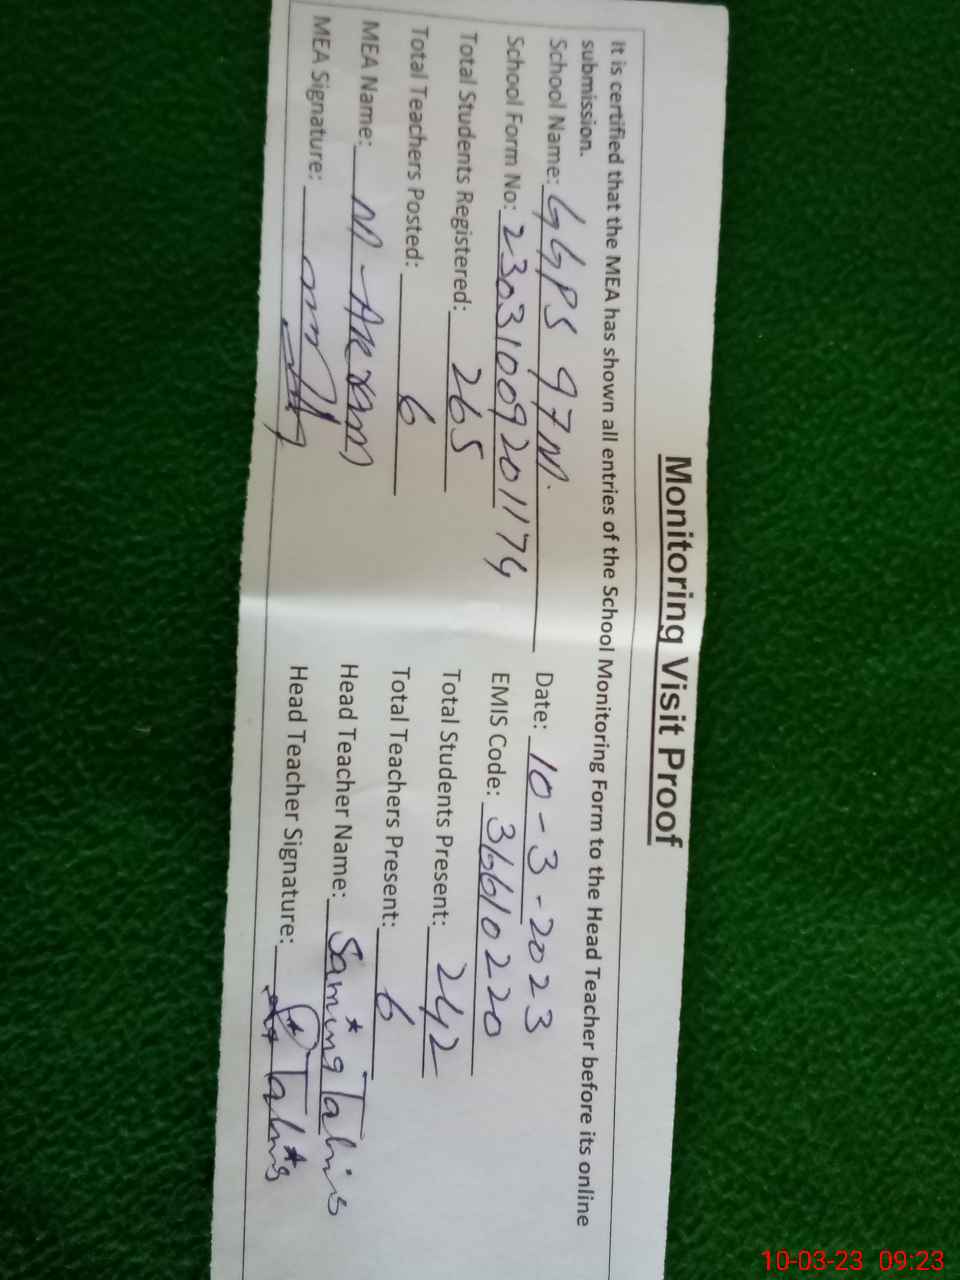 Monitoring Visit Proof
It is certified that the MEA has shown all entries of the School Monitoring Form to the Head Teacher before its online
submission.
School Name: GGPS 97M. Date: 10-3-2023
School Form No: 23031009201174 EMIS Code: 36610220
Total Students Registered: 265 Total Students Present: 242
Total Teachers Posted: 6 Total Teachers Present: 6
MEA Name: M-Akram Head Teacher Name: Samina Tahir
MEA Signature: Head Teacher Signature: Tahir
10-03-23 09:23